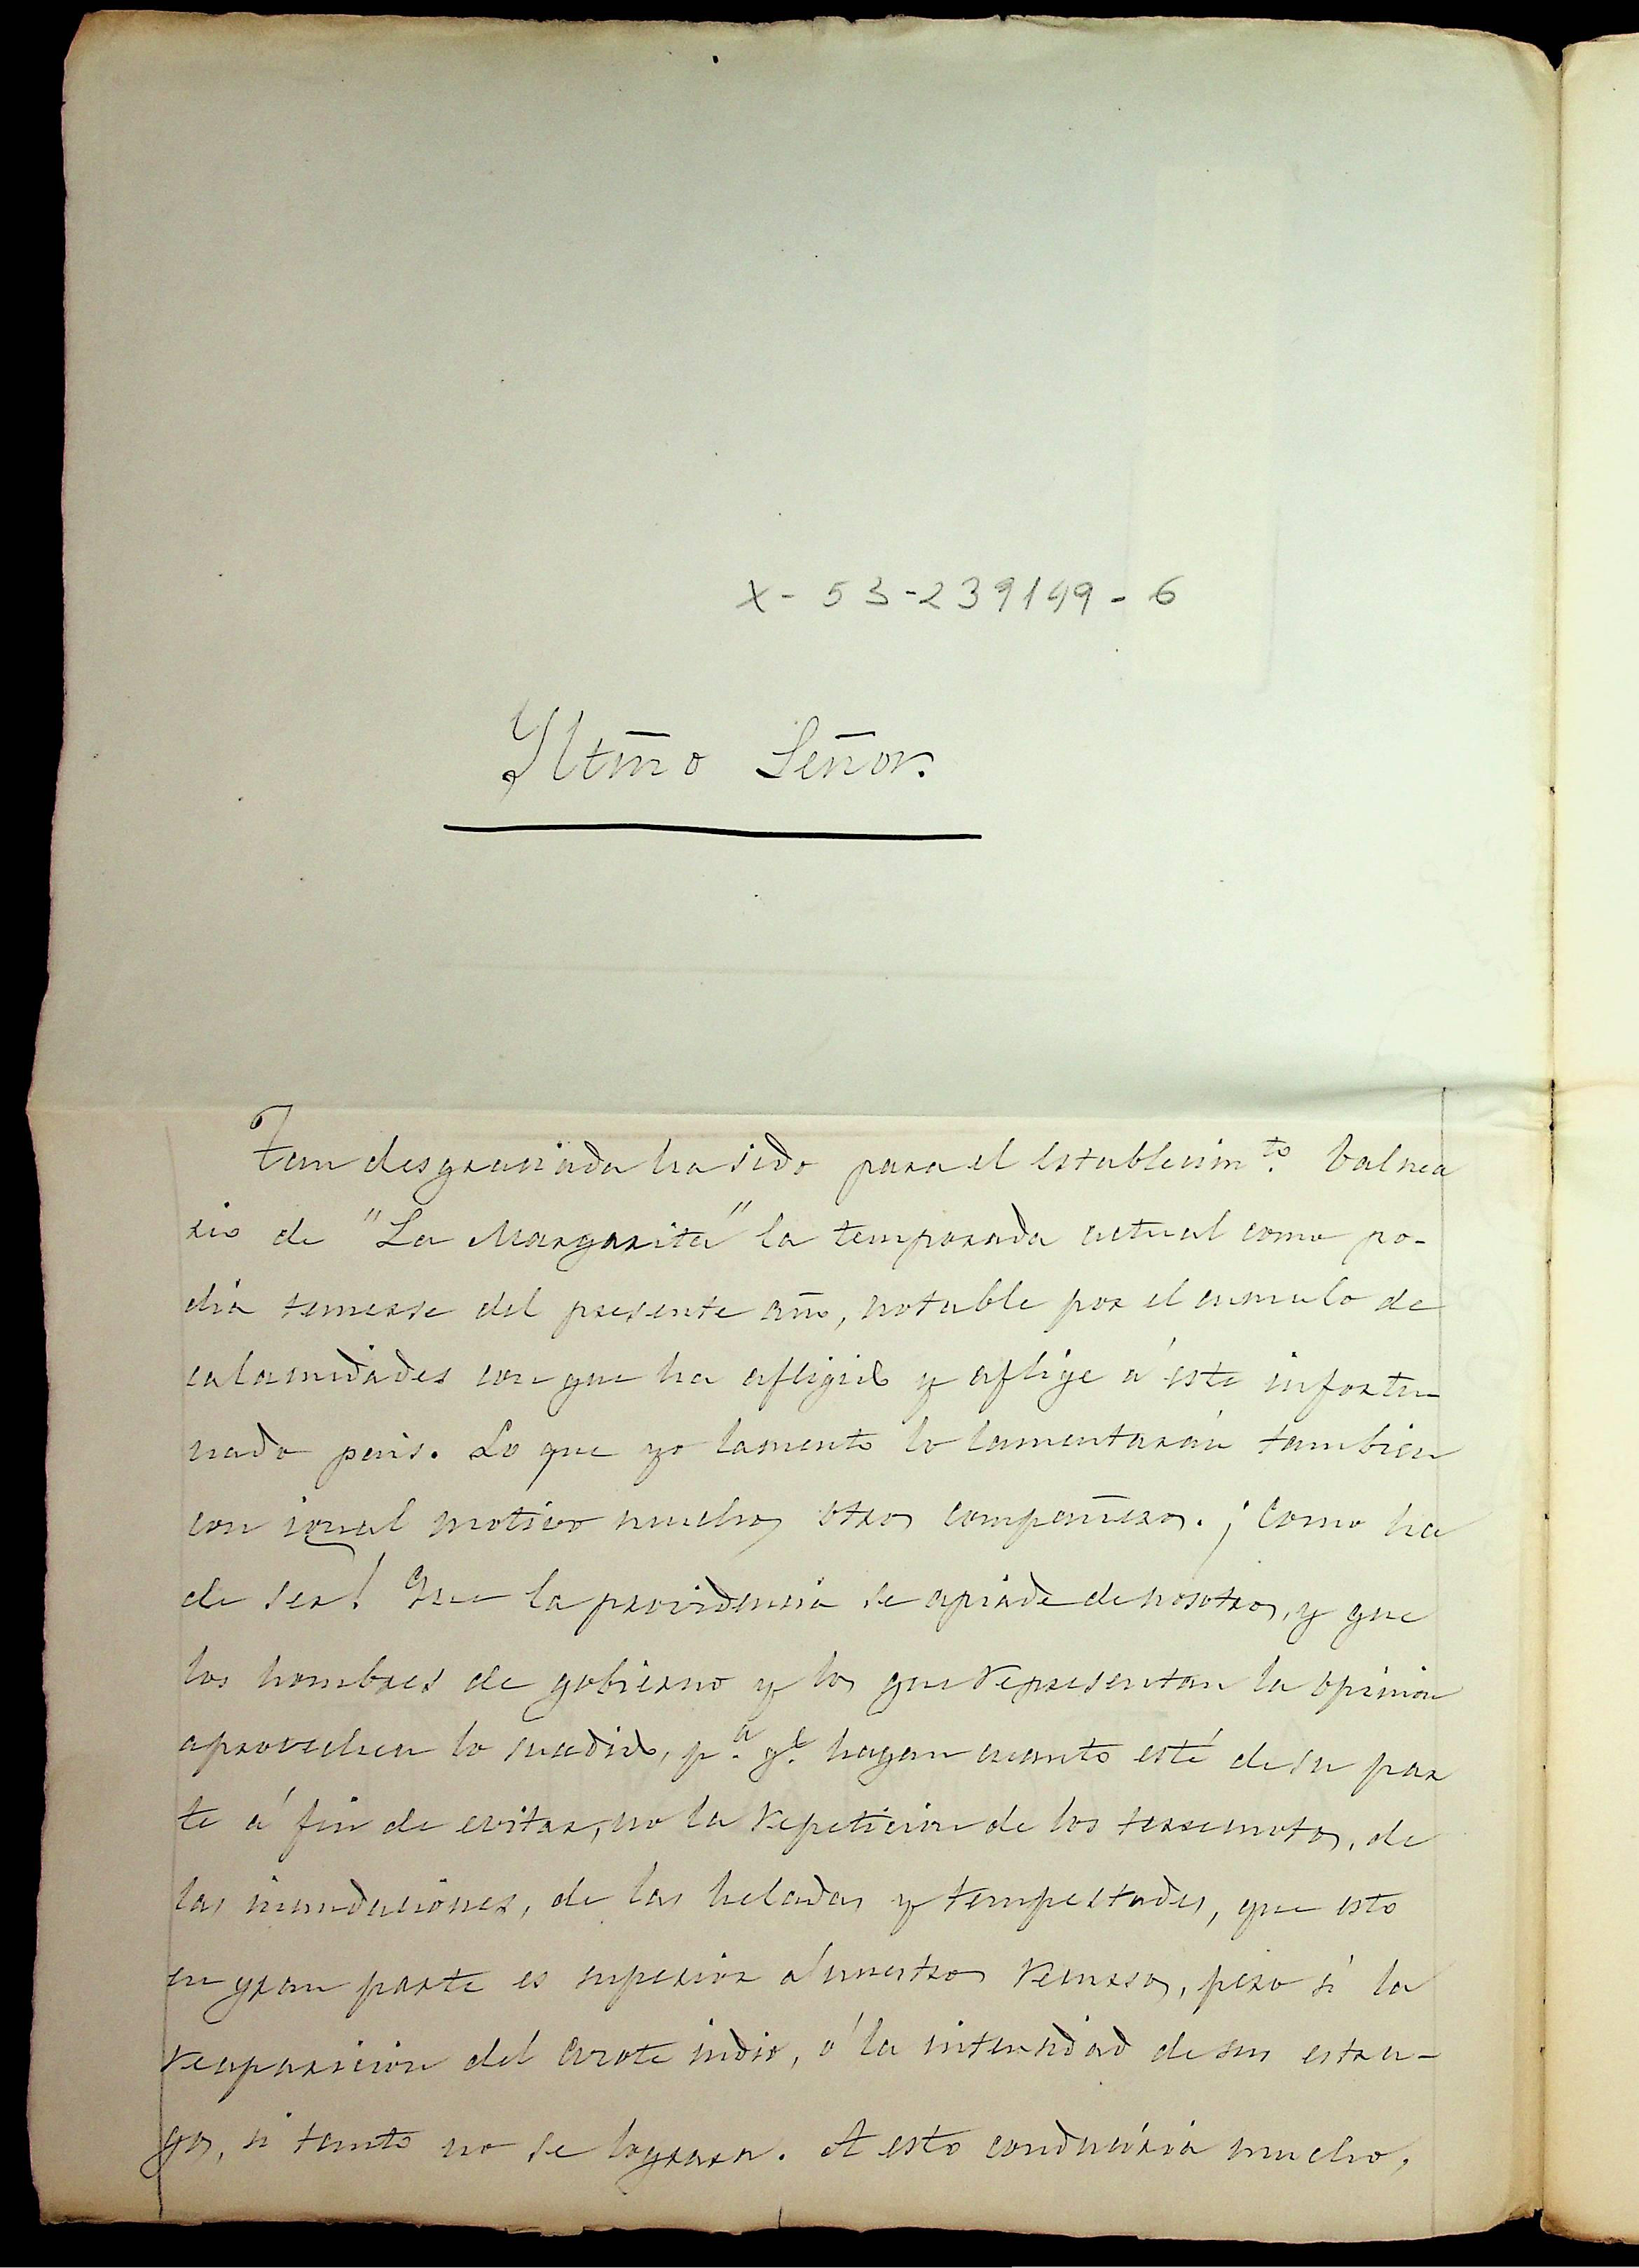 X - 53 - 239149 - 6
Yltm̄o Señor.
Tan desgraciada ha sido para el establecim.to balnea
rio de "La Margarita" la temporada actual como po-
dia temerse del presente año, notable por el cumulo de
calamidades con que ha afligido y aflige á este infortu-
nado pais. Lo que yo lamento lo lamentarán tambien
con igual motivo muchos otros compañeros. ¡Como ha
de ser! Que la providencia se apiade de nosotros, y que
los hombres de gobierno y los que representan la opinion
aprovechen lo sucedido, p.a q.e hagan cuanto esté de su par
te á fin de evitar, no la repeticion de los terremotos, de
las inundaciones, de las heladas y tempestades, que esto
en gran parte es superior á nuestros recursos, pero si la
reaparicion del azote indio, ó la intensidad de sus estra-
gos, si tanto no se lograra. A esto conduciria mucho,